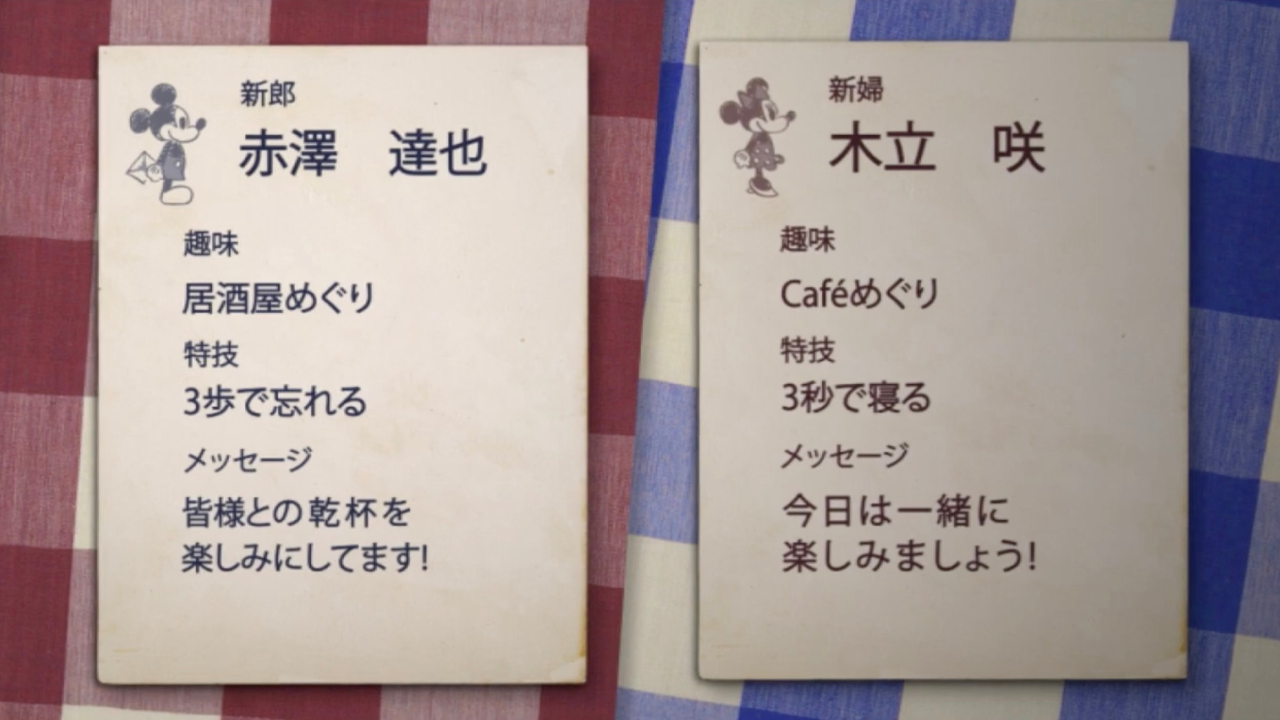 新郎
赤澤 達也
趣味
居酒屋めぐり
特技
3歩で忘れる
メッセージ
皆様との乾杯を
楽しみにしてます!
新婦
木立 咲
趣味
Caféめぐり
特技
3秒で寝る
メッセージ
今日は一緒に
楽しみましょう!